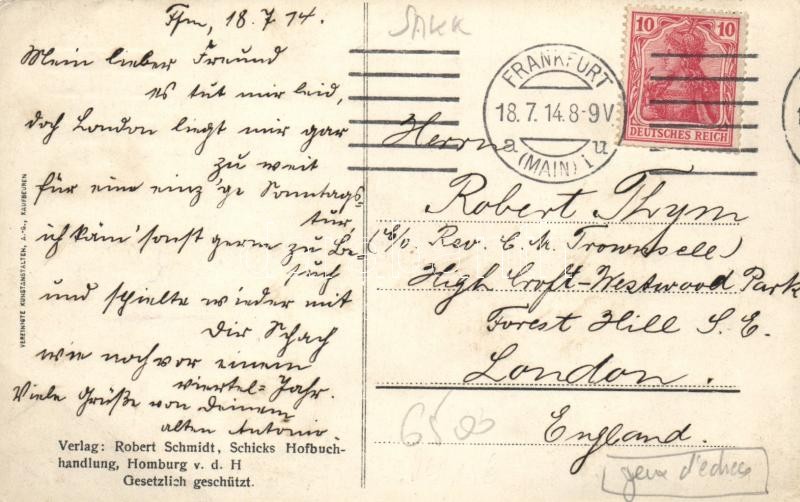 Ffm, 18.7.14.
Mein lieber Freund
es tut mir leid,
doch London liegt mir gar
zu weit
für eine einz'ge Sonntags-
tur,
ich käm' sonst gerne zu Be-
such
und spielte wieder mit
Dir Schach
wie noch vor einem
viertel-Jahr.
Viele Grüße von Deinem
alten Antonio.
Verlag: Robert Schmidt, Schicks Hofbuch-
handlung, Homburg v. d. H
Gesetzlich geschützt.
VEREINIGTE KUNSTANSTALTEN, A.-G., KAUFBEUREN
FRANKFURT
18.7.14.8-9V
a (MAIN) 1 u
10 10
DEUTSCHES REICH
Herrn
Robert Thym
(c/o Rev. C. M. Trownsell)
High Croft-Westwood Park
Forest Hill S. E.
London.
England.
6500
jeux d'echecs